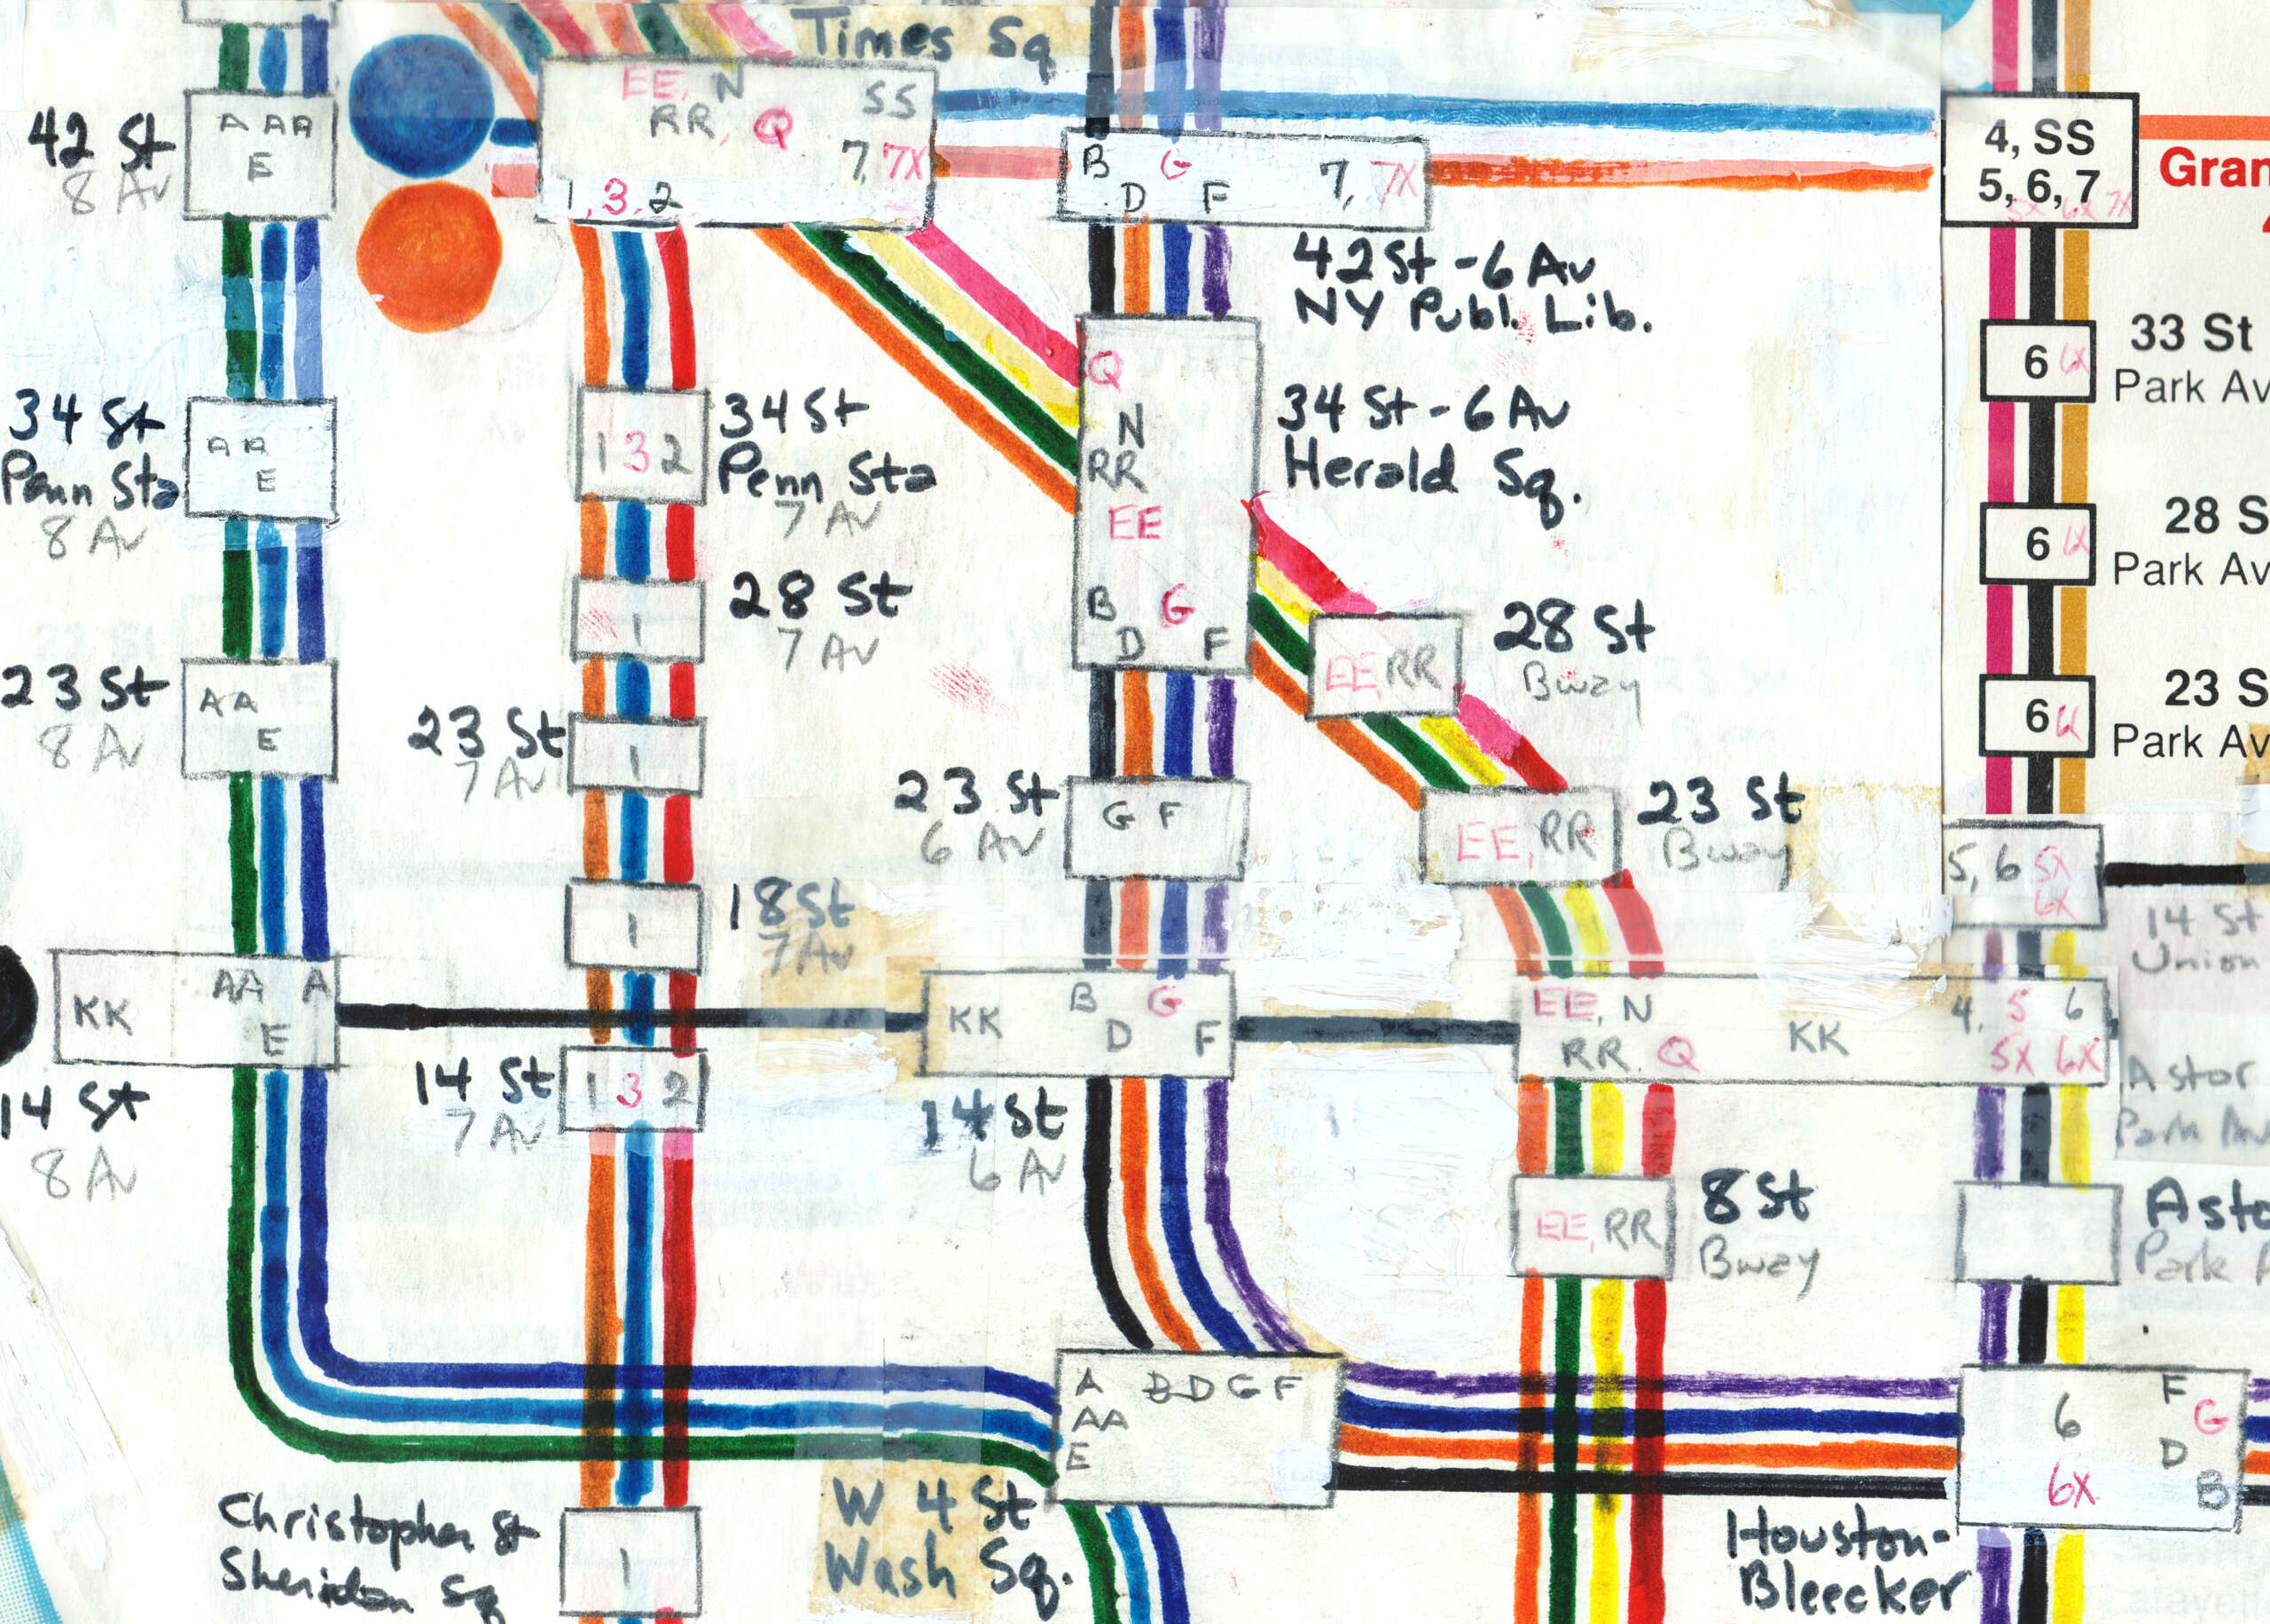 Times Sq
EE, N
RR, Q
SS
7, 7X
1, 3, 2
42 St
8 Av
A AA
E
B G
D F
7, 7X
4, SS
5, 6, 7
5X 6X 7X
Gran
42 St - 6 Av
NY Publ. Lib.
6 6X
33 St
Park Av
34 St
Penn Sta
8 Av
AA
E
1 3 2
34 St
Penn Sta
7 Av
Q
N
RR
EE
B G
D F
34 St - 6 Av
Herald Sq.
6 6X
28 S
Park Av
1
28 St
7 Av
EE, RR
28 St
Bway
23 St
8 Av
AA
E
23 St
7 Av
1
23 St
6 Av
G F
EE, RR
23 St
Bway
6
23 S
Park Av
1
18 St
7 Av
5, 6 5X
6X
14 St
Union
KK
AA A
E
14 St
8 Av
14 St
7 Av
1 3 2
KK
B G
D F
14 St
6 Av
EE, N
RR, Q
KK
4, 5 6
5X 6X
Astor
Park Av
EE, RR
8 St
Bway
Asto
Park A
A B D G F
AA
E
W 4 St
Wash Sq.
6
6X
F
G
D
B
Houston-
Bleecker
Christopher St
Sheridan Sq
1